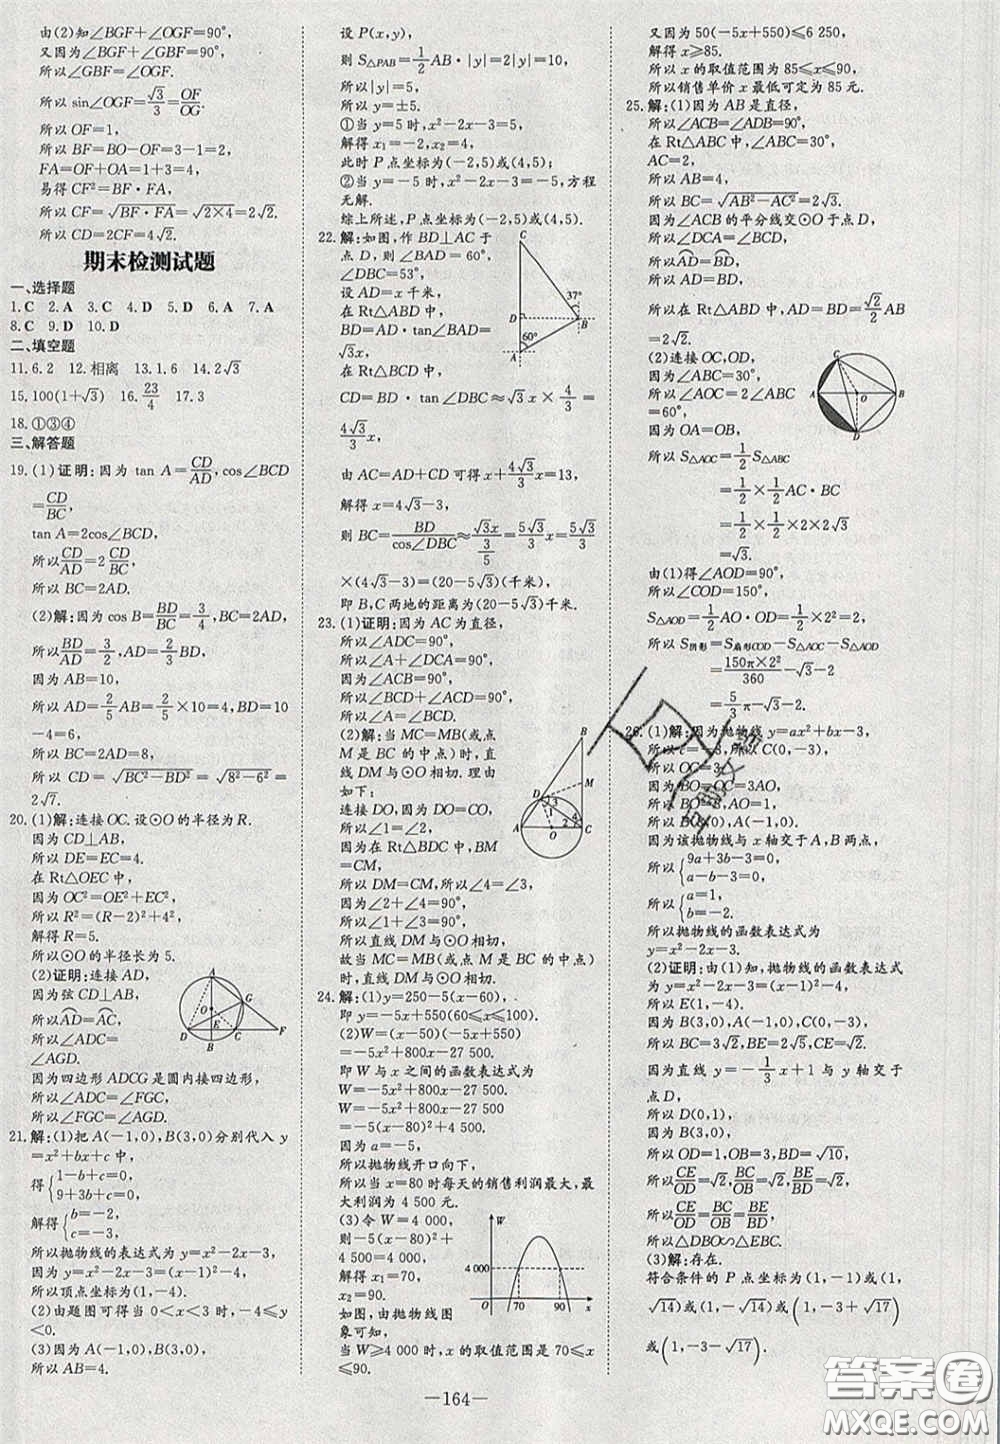 由(2)知∠BGF+∠OGF=90°,
又因为∠GBF+∠OGF=90°,
所以∠GBF=∠OGF.
所以 sin∠OGF=√3/3=OF/OG.
所以 OF=1,
所以 BF=BO-OF=3-1=2,
FA=OF+OA=1+3=4,
易得 CF²=BF·FA,
所以 CF=√(BF·FA)=√(2×4)=2√2.
所以 CD=2CF=4√2.
期末检测试题
一、选择题
1.C 2.A 3.C 4.D 5.D 6.A 7.A
8.C 9.D 10.D
二、填空题
11.6.2 12.相离 13.1.6 14.2√3
15.100(1+√3) 16.23/4 17.3
18.①③④
三、解答题
19.(1)证明:因为 tan A=CD/AD,cos∠BCD
=CD/BC,
tan A=2cos∠BCD,
所以CD/AD=2 CD/BC.
所以 BC=2AD.
(2)解:因为cos B=BD/BC=3/4,BC=2AD,
所以BD/AD=3/2,AD=2/5AB.
因为 AB=10,
所以AD=2/5AB=2/5×10=4,BD=10
-4=6,
所以 BC=2AD=8,
所以 CD=√(BC²-BD²)=√(8²-6²)=
2√7.
20.(1)解:连接OC.设⊙O的半径为R.
因为CD⊥AB,
所以 DE=EC=4.
在 Rt△OEC中,
因为 OC²=OE²+EC²,
所以 R²=(R-2)²+4²,
解得 R=5.
所以⊙O的半径长为 5.
(2)证明:连接 AD,
因为弦 CD⊥AB,
所以AD=AC,
所以∠ADC=
∠AGD.
因为四边形 ADCG 是圆内接四边形,
所以∠ADC=∠FGC,
所以∠FGC=∠AGD.
21.解:(1)把A(-1,0),B(3,0)分别代入 y
=x²+bx+c中,
得{1-b+c=0,
9+3b+c=0,
解得{b=-2,
c=-3,
所以抛物线的表达式为 y=x²-2x-3,
因为 y=x²-2x-3=(x-1)²-4,
所以顶点坐标为(1,-4).
(2)由题图可得当 0<x<3 时,-4≤y
<0.
(3)因为 A(-1,0),B(3,0),
所以 AB=4.
设 P(x,y),
则 S△PAB=1/2AB·|y|=2|y|=10,
所以|y|=5,
所以 y=±5.
①当 y=5 时,x²-2x-3=5,
解得 x₁=-2,x₂=4,
此时 P 点坐标为(-2,5)或(4,5);
②当 y=-5 时,x²-2x-3=-5,方程
无解.
综上所述,P点坐标为(-2,5)或(4,5).
22.解:如图,作 BD⊥AC 于
点 D,则∠BAD=60°,
∠DBC=53°,
设 AD=x 千米,
在 Rt△ABD 中,
BD=AD·tan∠BAD=
√3x.
在 Rt△BCD 中,
CD=BD·tan∠DBC≈√3x×4/3=
4√3/3x,
由 AC=AD+CD 可得 x+4√3/3x=13,
解得 x=4√3-3,
则 BC=BD/cos∠DBC≈√3x/(3/5)=5√3/3x=5√3/3
×(4√3-3)=(20-5√3)(千米),
即 B,C 两地的距离为(20-5√3)千米.
23.(1)证明:因为 AC 为直径,
所以∠ADC=90°,
所以∠A+∠DCA=90°,
因为∠ACB=90°,
所以∠BCD+∠ACD=90°,
所以∠BCD=∠A.
(2)解:当 MC=MB(或点
M 是 BC 的中点)时,直
线 DM与⊙O相切.理由
如下:
连接 DO,因为 DO=CO,
所以∠1=∠2.
因为在 Rt△BDC 中,BM
=CM,
所以DM=CM,所以∠4=∠3,
因为∠2+∠4=90°,
所以∠1+∠3=90°,
所以直线 DM与⊙O相切,
故当 MC=MB(或点 M 是 BC 的中点)
时,直线 DM与⊙O相切.
24.解:(1)y=250-5(x-60),
即 y=-5x+550(60≤x≤100).
(2)W=(x-50)(-5x+550)
=-5x²+800x-27 500,
即 W 与 x 之间的函数表达式为
W=-5x²+800x-27 500.
W=-5x²+800x-27 500
=-5(x-80)²+4 500.
因为 a=-5,
所以抛物线开口向下,
所以当 x=80时每天的销售利润最大,最
大利润为 4 500 元.
(3)令 W=4 000,
则-5(x-80)²+
4 500=4 000.
解得 x₁=70,
x₂=90.
如图,由抛物线图
象可知,
当 W≥4 000 时,x 的取值范围是 70≤x
≤90.
又因为 50(-5x+550)≤6 250,
解得 x≥85.
所以 x 的取值范围为 85≤x≤90.
所以销售单价 x 最低可定为 85 元.
25.解:(1)因为 AB 是直径,
所以∠ACB=∠ADB=90°,
在 Rt△ABC 中,∠ABC=30°,
AC=2,
所以 AB=4,
所以 BC=√(AB²-AC²)=2√3.
因为∠ACB的平分线交⊙O于点D,
所以∠DCA=∠BCD,
所以AD=BD,
所以 AD=BD,
所以在 Rt△ABD 中,AD=BD=√2/2AB=
2√2.
(2)连接 OC,OD,
因为∠ABC=30°,
所以∠AOC=2∠ABC
=60°,
因为 OA=OB,
所以 S△AOC=1/2S△ABC
=1/2×1/2AC·BC
=1/2×1/2×2×2√3
=√3.
由(1)得∠AOD=90°,
所以∠COD=150°,
S△AOD=1/2AO·OD=1/2×2²=2,
所以 S阴影=S扇形COD-S△AOC-S△AOD
=150π×2²/360-√3-2
=5/3π-√3-2.
26.(1)解:因为抛物线 y=ax²+bx-3,
所以 c=-3,所以C(0,-3),
所以 OC=3,
因为 BO=OC=3AO,
所以 BO=3,AO=1,
所以 B(3,0),A(-1,0),
因为该抛物线与 x 轴交于A,B 两点,
所以{9a+3b-3=0,
a-b-3=0,
所以{a=1,
b=-2.
所以抛物线的函数表达式为
y=x²-2x-3.
(2)证明:由(1)知,抛物线的函数表达式
为 y=x²-2x-3=(x-1)²-4,
所以 E(1,-4).
因为 B(3,0),A(-1,0),C(0,-3),
所以 BC=3√2,BE=2√5,CE=√2,
因为直线 y=-1/3x+1 与 y 轴交于
点D,
所以 D(0,1),
因为 B(3,0),
所以 OD=1,OB=3,BD=√10,
所以CE/OD=√2,BC/OB=√2,BE/BD=√2,
所以CE/OD=BC/OB=BE/BD,
所以△DBO∽△EBC.
(3)解:存在.
符合条件的 P 点坐标为(1,-1)或(1,
√14)或(1,-√14)或(1,-3+√17)
或(1,-3-√17).
A
O
E
D
B
C
G
F
C
37°
D
B
60°
A
B
M
D
3
1
2
4
A
O
C
W
4 000
O
70
90
x
C
A
O
B
D
—164—
答案圈
MXQE.COM